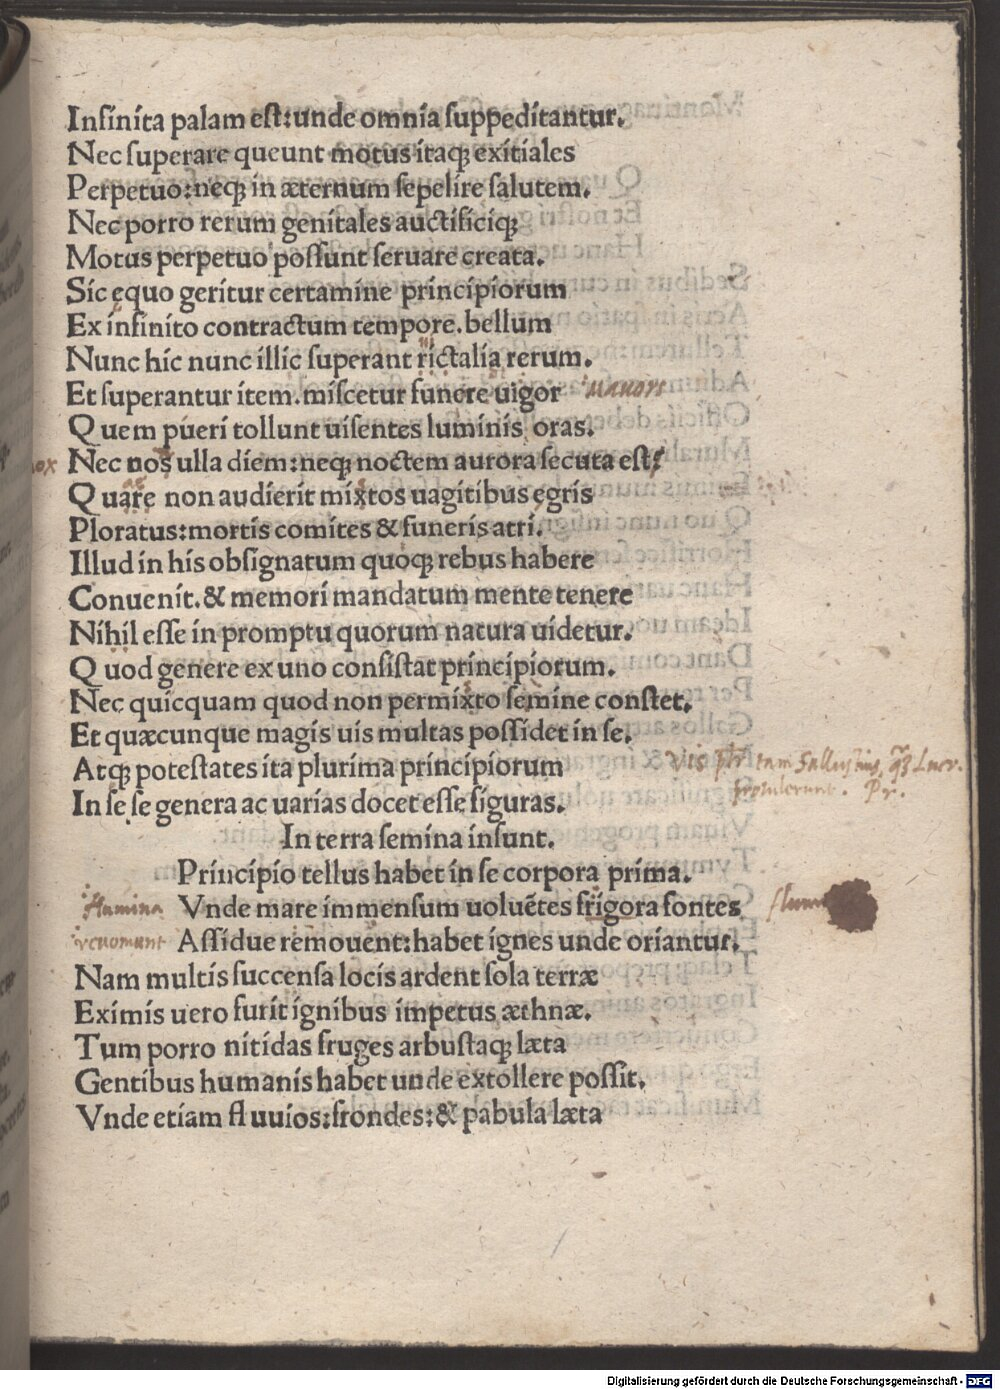 Infinita palam est:unde omnia suppeditantur.
Nec superare queunt motus itaqꝫ exitiales
Perpetuo:neqꝫ in æternum sepelire salutem.
Nec porro rerum genitales auctificiqꝫ
Motus perpetuo possunt seruare creata.
Sic ęquo geritur certamine principiorum
Ex infinito contractum tempore.bellum
Nunc hic nunc illic superant rictalia rerum.
Et superantur item.miscetur funere uigor uauore
Quem pueri tollunt uisentes luminis oras.
nox Nec nos ulla diem:neqꝫ noctem aurora secuta est:
Quare non audierit mixtos uagitibus ęgris
Ploratus:mortis comites & funeris atri.
Illud in his obsignatum quoqꝫ rebus habere
Conuenit.& memori mandatum mente tenere
Nihil esse in promptu quorum natura uidetur.
Quod genere ex uno consistat principiorum.
Nec quicquam quod non permixto semine constet.
Et quæcunque magis uis multas possidet in se.
Atqꝫ potestates ita plurima principiorum
Vis plr tam Sallustius, qꝫ Lucr.
protulerunt. Pr.
In se se genera ac uarias docet esse figuras.
In terra semina insunt.
Principio tellus habet in se corpora prima.
flumina Vnde mare immensum uoluētes frigora fontes flum
reuomunt Assidue remouent:habet ignes unde oriantur.
Nam multis succensa locis ardent sola terræ
Eximis uero furit ignibus impetus æthnæ.
Tum porro nitidas fruges arbustaqꝫ læta
Gentibus humanis habet unde extollere possit.
Vnde etiam fluuuios:frondes:& pabula læta
Digitalisierung gefördert durch die Deutsche Forschungsgemeinschaft - DFG